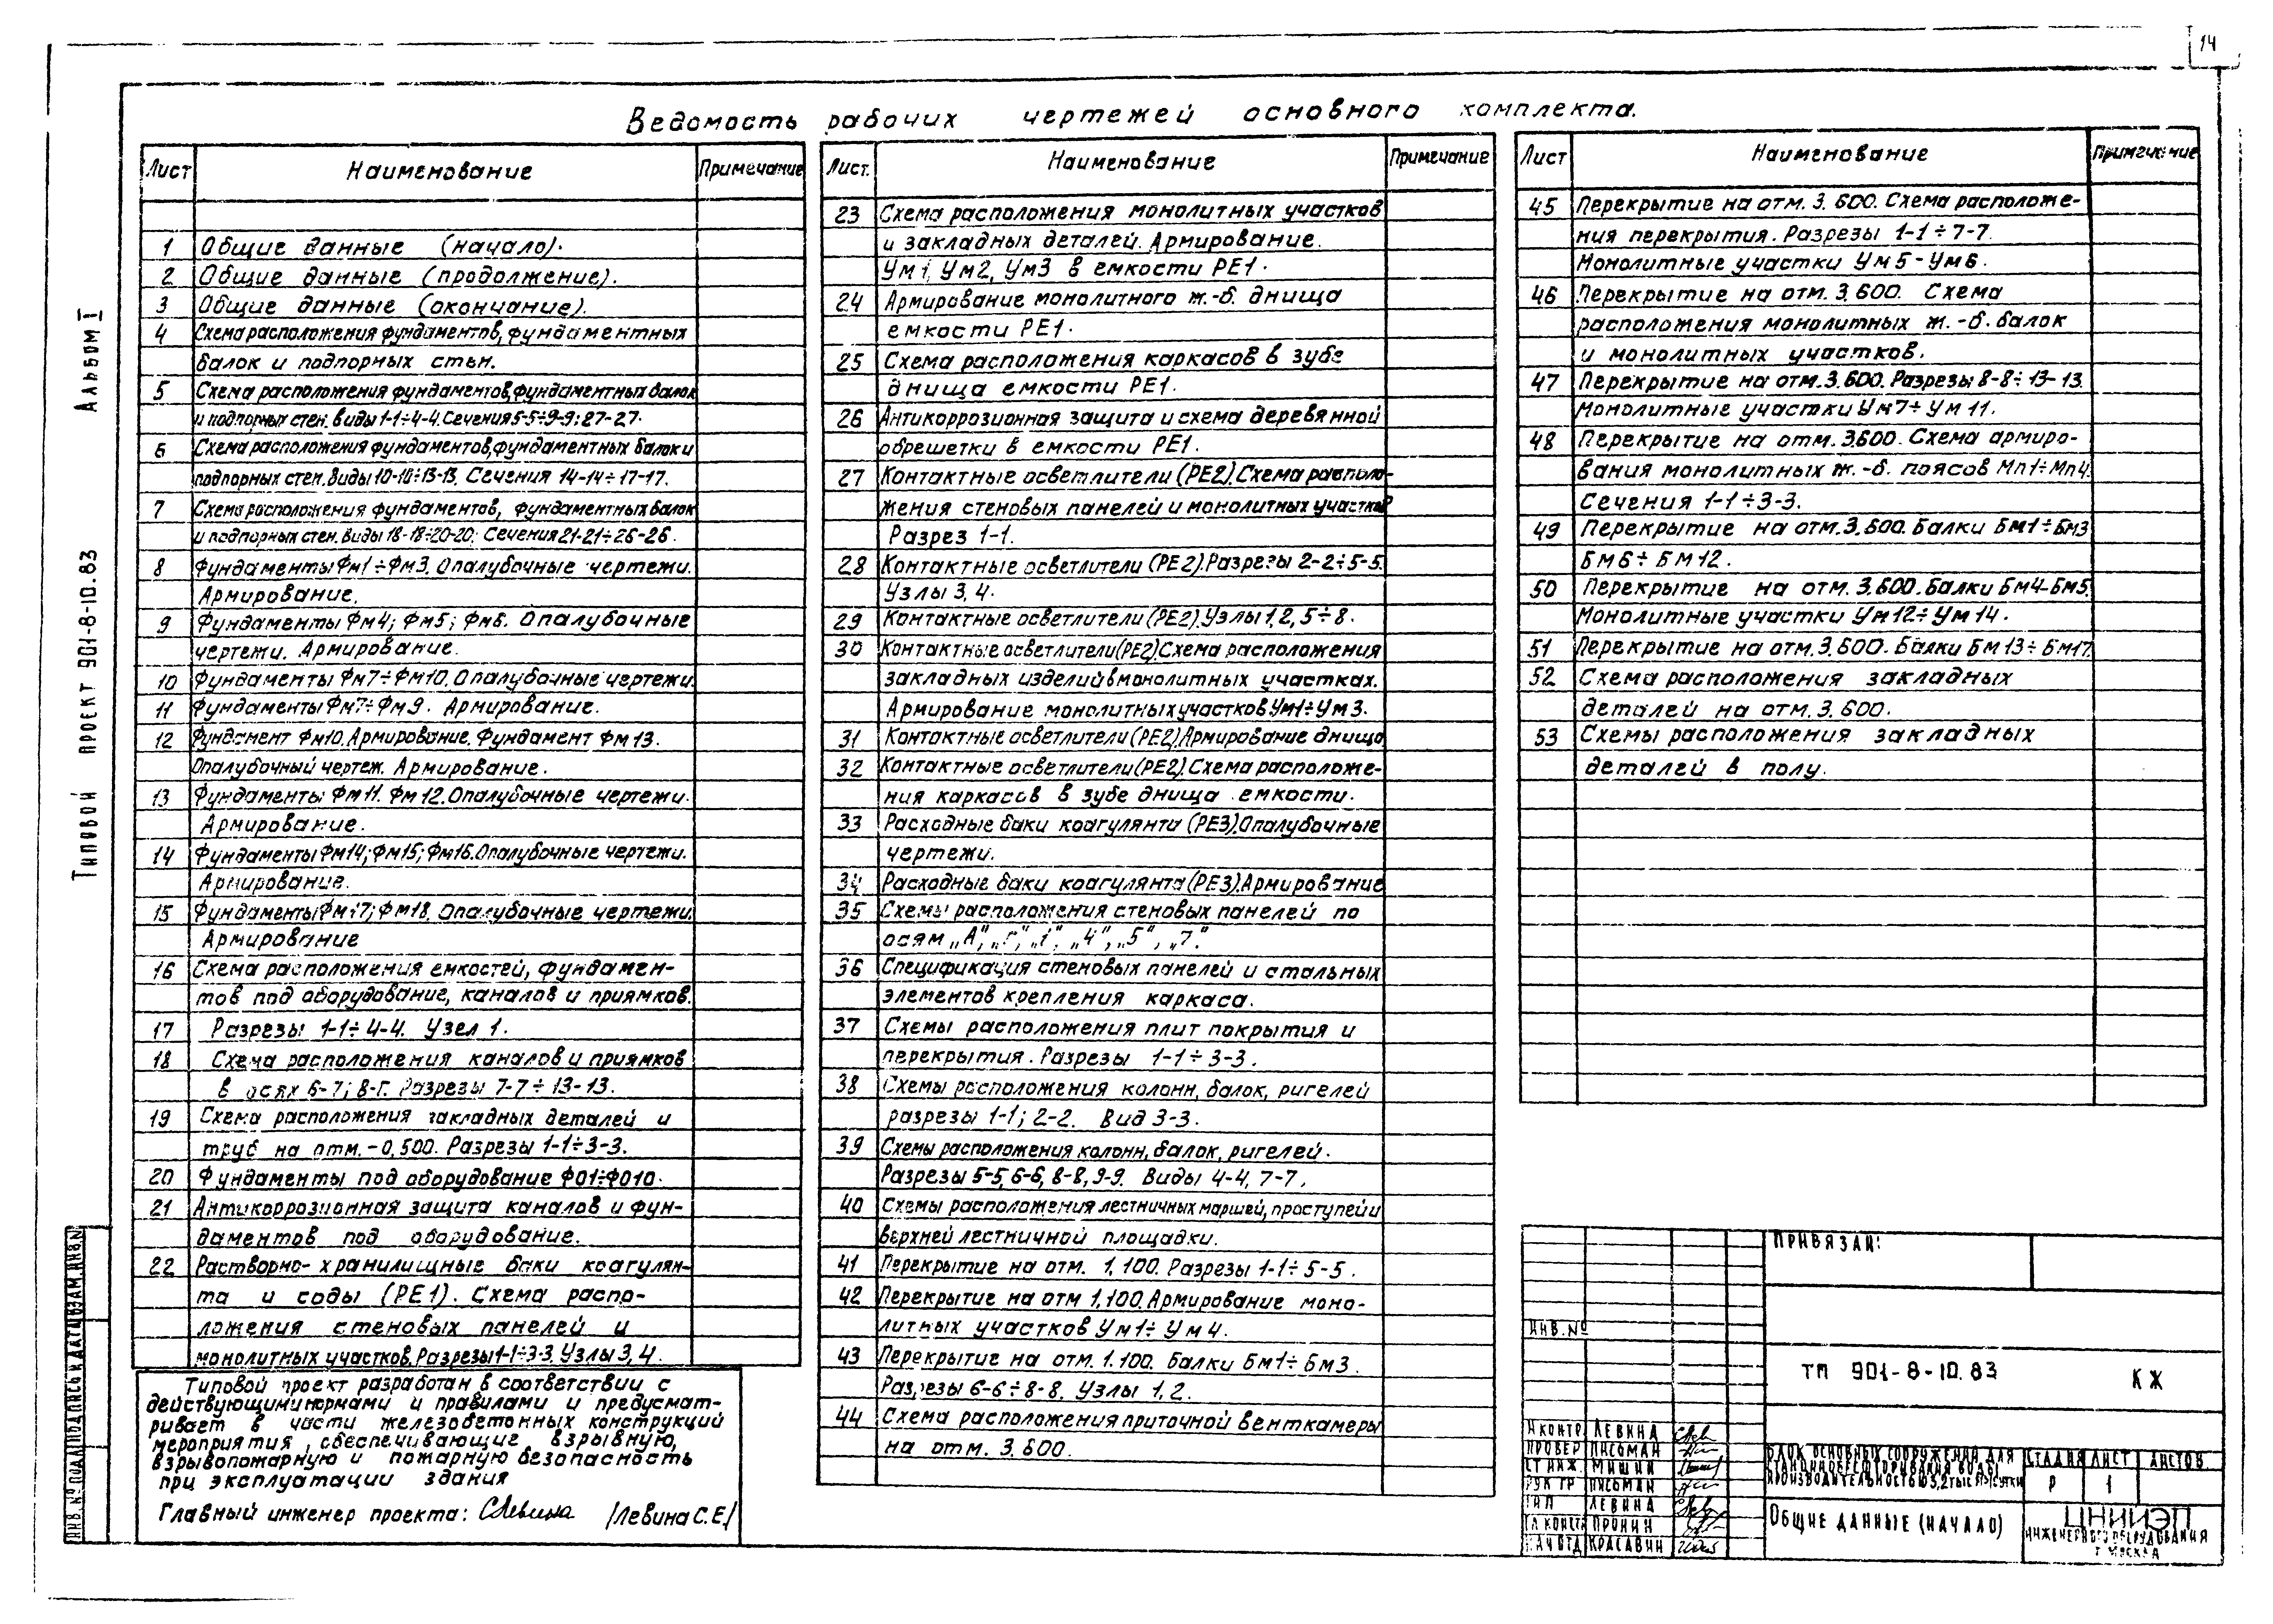 14
Ведомость рабочих чертежей основного комплекта.
Лист Наименование Примечание
1 Общие данные (начало).
2 Общие данные (продолжение).
3 Общие данные (окончание).
4 Схема расположения фундаментов, фундаментных
балок и подпорных стен.
5 Схема расположения фундаментов, фундаментных балок
и подпорных стен. Виды 1-1÷4-4. Сечения 5-5÷9-9; 27-27.
6 Схема расположения фундаментов, фундаментных балок и
подпорных стен. Виды 10-10÷13-13. Сечения 14-14÷17-17.
7 Схема расположения фундаментов, фундаментных балок
и подпорных стен. Виды 18-18÷20-20; Сечения 21-21÷26-26.
8 Фундаменты Фм1÷Фм3. Опалубочные чертежи.
Армирование.
9 Фундаменты Фм4; Фм5; Фм6. Опалубочные
чертежи. Армирование.
10 Фундаменты Фм7÷Фм10. Опалубочные чертежи.
11 Фундаменты Фм7÷Фм9. Армирование.
12 Фундамент Фм10. Армирование. Фундамент Фм13.
Опалубочный чертеж. Армирование.
13 Фундаменты Фм11. Фм12. Опалубочные чертежи.
Армирование.
14 Фундаменты Фм14; Фм15; Фм16. Опалубочные чертежи.
Армирование.
15 Фундаменты Фм17; Фм18. Опалубочные чертежи.
Армирование
16 Схема расположения емкостей, фундамен-
тов под оборудование, каналов и приямков.
17 Разрезы 1-1÷4-4. Узел 1.
18 Схема расположения каналов и приямков
в осях 6-7; В-Г. Разрезы 7-7÷13-13.
19 Схема расположения закладных деталей и
труб на отм. -0,500. Разрезы 1-1÷3-3.
20 Фундаменты под оборудование Ф01÷Ф010.
21 Антикоррозионная защита каналов и фун-
даментов под оборудование.
22 Растворно-хранилищные баки коагулян-
та и соды (РЕ1). Схема распо-
ложения стеновых панелей и
монолитных участков. Разрезы 1-1÷3-3. Узлы 3, 4.
Лист. Наименование Примечание
23 Схема расположения монолитных участков
и закладных деталей. Армирование.
Ум1, Ум2, Ум3 в емкости РЕ1.
24 Армирование монолитного ж.-б. днища
емкости РЕ1.
25 Схема расположения каркасов в зубе
днища емкости РЕ1.
26 Антикоррозионная защита и схема деревянной
обрешетки в емкости РЕ1.
27 Контактные осветлители (РЕ2). Схема располо-
жения стеновых панелей и монолитных участков
Разрез 1-1.
28 Контактные осветлители (РЕ2). Разрезы 2-2÷5-5.
Узлы 3, 4.
29 Контактные осветлители (РЕ2). Узлы 1, 2, 5÷8.
30 Контактные осветлители (РЕ2). Схема расположения
закладных изделий в монолитных участках.
Армирование монолитных участков Ум1÷Ум3.
31 Контактные осветлители (РЕ2). Армирование днища
32 Контактные осветлители (РЕ2). Схема расположе-
ния каркасов в зубе днища емкости.
33 Расходные баки коагулянта (РЕ3). Опалубочные
чертежи.
34 Расходные баки коагулянта (РЕ3). Армирование
35 Схемы расположения стеновых панелей по
осям „А", „Г", „1", „4", „5", „7".
36 Спецификация стеновых панелей и стальных
элементов крепления каркаса.
37 Схемы расположения плит покрытия и
перекрытия. Разрезы 1-1÷3-3.
38 Схемы расположения колонн, балок, ригелей
разрезы 1-1; 2-2. Вид 3-3.
39 Схемы расположения колонн, балок, ригелей.
Разрезы 5-5, 6-6, 8-8, 9-9. Виды 4-4, 7-7.
40 Схемы расположения лестничных маршей, проступей и
верхней лестничной площадки.
41 Перекрытие на отм. 1.100. Разрезы 1-1÷5-5.
42 Перекрытие на отм 1.100. Армирование моно-
литных участков Ум1÷Ум4.
43 Перекрытие на отм. 1.100. Балки Бм1÷Бм3.
Разрезы 6-6÷8-8. Узлы 1, 2.
44 Схема расположения приточной венткамеры
на отм. 3.600.
Лист Наименование Примечание
45 Перекрытие на отм. 3.600. Схема расположе-
ния перекрытия. Разрезы 1-1÷7-7.
Монолитные участки Ум5-Ум6.
46 Перекрытие на отм. 3.600. Схема
расположения монолитных ж.-б. балок
и монолитных участков.
47 Перекрытие на отм. 3.600. Разрезы 8-8÷13-13.
Монолитные участки Ум7÷Ум11.
48 Перекрытие на отм. 3.600. Схема армиро-
вания монолитных ж.-б. поясов Мп1÷Мп4.
Сечения 1-1÷3-3.
49 Перекрытие на отм. 3.600. Балки Бм1÷Бм3
Бм6÷Бм12.
50 Перекрытие на отм. 3.600. Балки Бм4-Бм5.
Монолитные участки Ум12÷Ум14.
51 Перекрытие на отм. 3.600. Балки Бм13÷Бм17.
52 Схема расположения закладных
деталей на отм. 3.600.
53 Схемы расположения закладных
деталей в полу.
Типовой проект разработан в соответствии с
действующими нормами и правилами и предусмат-
ривает в части железобетонных конструкций
мероприятия, обеспечивающие взрывную,
взрывопожарную и пожарную безопасность
при эксплуатации здания
Главный инженер проекта: СЛевина /Левина С.Е./
Типовой проект 901-8-10.83 Альбом I
Инв. № подл Подпись и дата Взам. инв. №
Привязан:
Инв. №
ТП 901-8-10.83 КЖ
Н контр Левина
Провер Письман
Ст инж. Мишин
Рук гр Письман
ГИП Левина
Гл констр Пронин
Нач отд Красавин
Блок основных сооружений для
станции обесфторивания воды
производительностью 3,2 тыс м³/сутки
Стадия Лист Листов
Р 1
Общие данные (начало)
ЦНИИЭП
инженерного оборудования
г. Москва